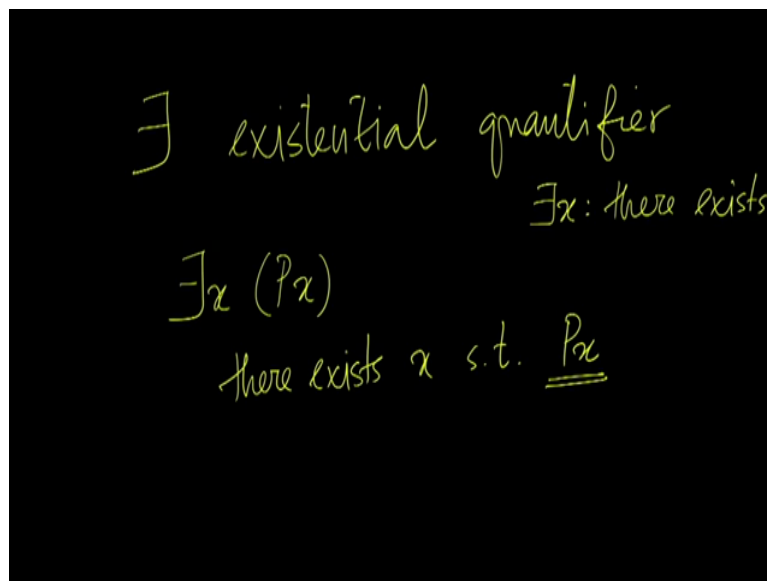 ∃ existential quantifier
∃x: there exists
∃x (Px)
there exists x s.t. Px